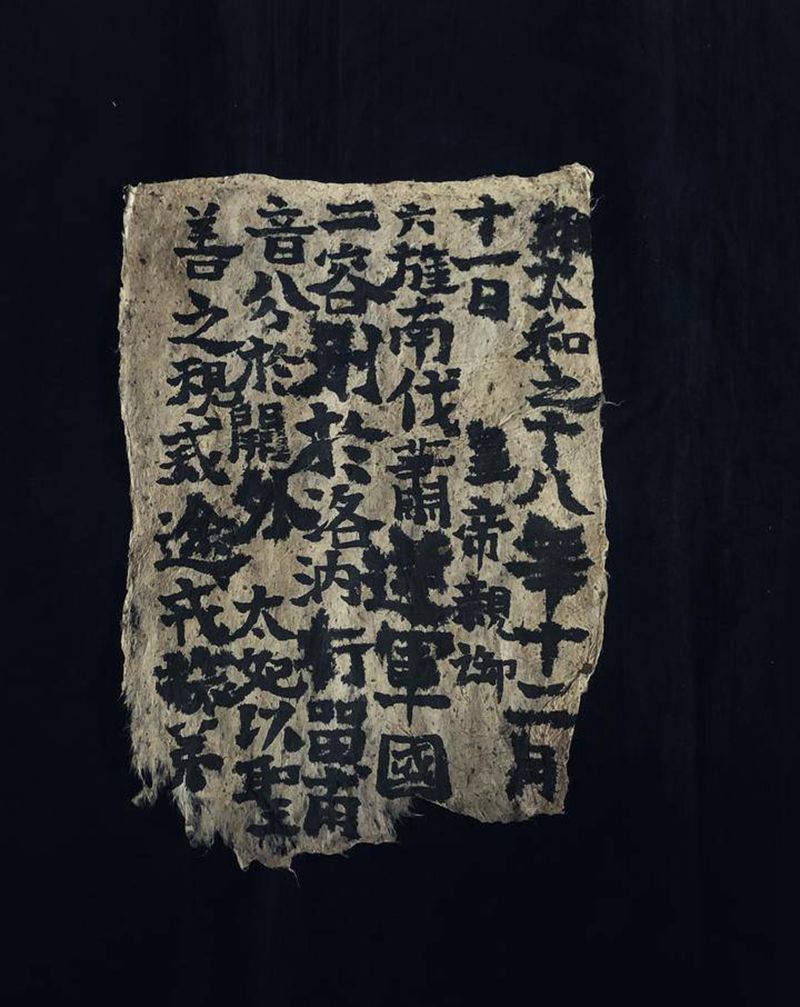 維太和之十八年十二月
十一日 皇帝親御
六旌南伐蕭逆軍國
二容別於洛汭行留兩
音分於外 太妃以聖
善之規戒途戒旅弟